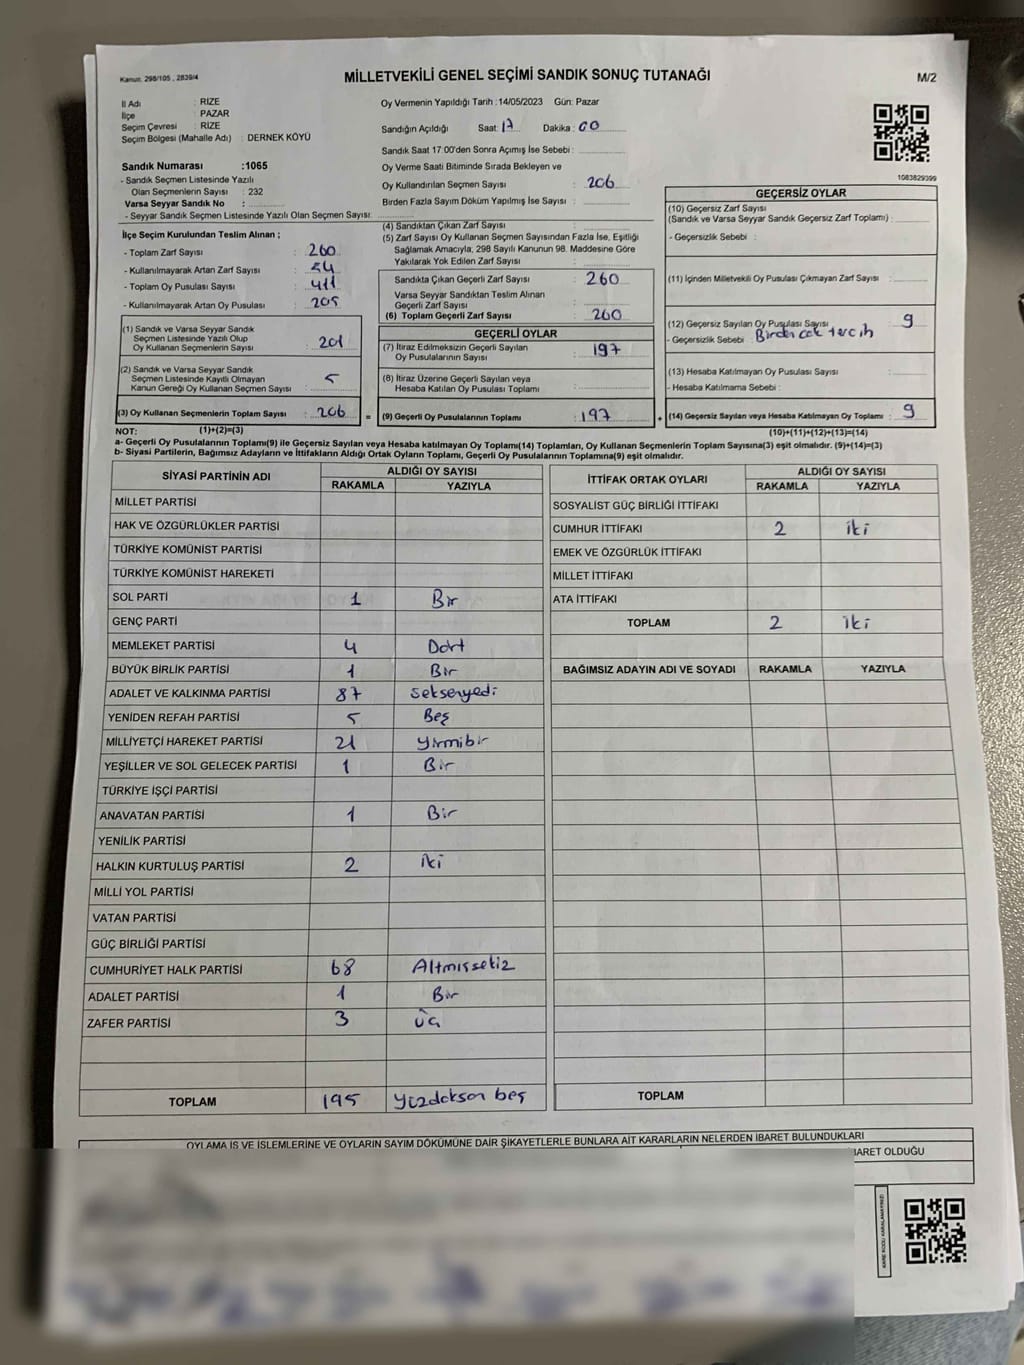 Kanun: 298/105 , 2839/4
MİLLETVEKİLİ GENEL SEÇİMİ SANDIK SONUÇ TUTANAĞI
M/2
İl Adı : RİZE
İlçe : PAZAR
Seçim Çevresi : RİZE
Seçim Bölgesi (Mahalle Adı) : DERNEK KÖYÜ
Sandık Numarası :1065
- Sandık Seçmen Listesinde Yazılı
Olan Seçmenlerin Sayısı : 232
Varsa Seyyar Sandık No :
- Seyyar Sandık Seçmen Listesinde Yazılı Olan Seçmen Sayısı:
Oy Vermenin Yapıldığı Tarih :14/05/2023 Gün: Pazar
Sandığın Açıldığı Saat: 17 Dakika : 00
Sandık Saat 17:00'den Sonra Açımış İse Sebebi :
Oy Verme Saati Bitiminde Sırada Bekleyen ve
Oy Kullandırılan Seçmen Sayısı : 206
Birden Fazla Sayım Döküm Yapılmış İse Sayısı :
1083829399
İlçe Seçim Kurulundan Teslim Alınan ;
- Toplam Zarf Sayısı : 260
- Kullanılmayarak Artan Zarf Sayısı : 54
- Toplam Oy Pusulası Sayısı : 411
- Kullanılmayarak Artan Oy Pusulası : 205
(1) Sandık ve Varsa Seyyar Sandık
Seçmen Listesinde Yazılı Olup
Oy Kullanan Seçmenlerin Sayısı : 201
(2) Sandık ve Varsa Seyyar Sandık
Seçmen Listesinde Kayıtlı Olmayan
Kanun Gereği Oy Kullanan Seçmen Sayısı : 5
(3) Oy Kullanan Seçmenlerin Toplam Sayısı : 206
(4) Sandıktan Çıkan Zarf Sayısı :
(5) Zarf Sayısı Oy Kullanan Seçmen Sayısından Fazla İse, Eşitliği
Sağlamak Amacıyla; 298 Sayılı Kanunun 98. Maddesine Göre
Yakılarak Yok Edilen Zarf Sayısı :
Sandıkta Çıkan Geçerli Zarf Sayısı : 260
Varsa Seyyar Sandıktan Teslim Alınan
Geçerli Zarf Sayısı :
(6) Toplam Geçerli Zarf Sayısı : 260
GEÇERLİ OYLAR
(7) İtiraz Edilmeksizin Geçerli Sayılan
Oy Pusulalarının Sayısı : 197
(8) İtiraz Üzerine Geçerli Sayılan veya
Hesaba Katılan Oy Pusulası Toplamı :
= (9) Geçerli Oy Pusulalarının Toplamı : 197 +
GEÇERSİZ OYLAR
(10) Geçersiz Zarf Sayısı
(Sandık ve Varsa Seyyar Sandık Geçersiz Zarf Toplamı) :
- Geçersizlik Sebebi :
(11) İçinden Milletvekili Oy Pusulası Çıkmayan Zarf Sayısı :
(12) Geçersiz Sayılan Oy Pusulası Sayısı : 9
- Geçersizlik Sebebi : Birden çok tercih
(13) Hesaba Katılmayan Oy Pusulası Sayısı :
- Hesaba Katılmama Sebebi :
(14) Geçersiz Sayılan veya Hesaba Katılmayan Oy Toplamı : 9
NOT: (1)+(2)=(3) (10)+(11)+(12)+(13)=(14)
a- Geçerli Oy Pusulalarının Toplamı(9) ile Geçersiz Sayılan veya Hesaba katılmayan Oy Toplamı(14) Toplamları, Oy Kullanan Seçmenlerin Toplam Sayısına(3) eşit olmalıdır. (9)+(14)=(3)
b- Siyasi Partilerin, Bağımsız Adayların ve İttifakların Aldığı Ortak Oyların Toplamı, Geçerli Oy Pusulalarının Toplamına(9) eşit olmalıdır.
SİYASİ PARTİNİN ADI ALDIĞI OY SAYISI
RAKAMLA YAZIYLA
MİLLET PARTİSİ
HAK VE ÖZGÜRLÜKLER PARTİSİ
TÜRKİYE KOMÜNİST PARTİSİ
TÜRKİYE KOMÜNİST HAREKETİ
SOL PARTİ 1 Bir
GENÇ PARTİ
MEMLEKET PARTİSİ 4 Dört
BÜYÜK BİRLİK PARTİSİ 1 Bir
ADALET VE KALKINMA PARTİSİ 87 Seksenyedi
YENİDEN REFAH PARTİSİ 5 Beş
MİLLİYETÇİ HAREKET PARTİSİ 21 Yirmibir
YEŞİLLER VE SOL GELECEK PARTİSİ 1 Bir
TÜRKİYE İŞÇİ PARTİSİ
ANAVATAN PARTİSİ 1 Bir
YENİLİK PARTİSİ
HALKIN KURTULUŞ PARTİSİ 2 iki
MİLLİ YOL PARTİSİ
VATAN PARTİSİ
GÜÇ BİRLİĞİ PARTİSİ
CUMHURİYET HALK PARTİSİ 68 Altmışsekiz
ADALET PARTİSİ 1 Bir
ZAFER PARTİSİ 3 üç
TOPLAM 195 Yüzdoksan beş
İTTİFAK ORTAK OYLARI ALDIĞI OY SAYISI
RAKAMLA YAZIYLA
SOSYALİST GÜÇ BİRLİĞİ İTTİFAKI
CUMHUR İTTİFAKI 2 iki
EMEK VE ÖZGÜRLÜK İTTİFAKI
MİLLET İTTİFAKI
ATA İTTİFAKI
TOPLAM 2 iki
BAĞIMSIZ ADAYIN ADI VE SOYADI RAKAMLA YAZIYLA
TOPLAM
OYLAMA İŞ VE İŞLEMLERİNE VE OYLARIN SAYIM DÖKÜMÜNE DAİR ŞİKAYETLERLE BUNLARA AİT KARARLARIN NELERDEN İBARET BULUNDUKLARI
İBARET OLDUĞU